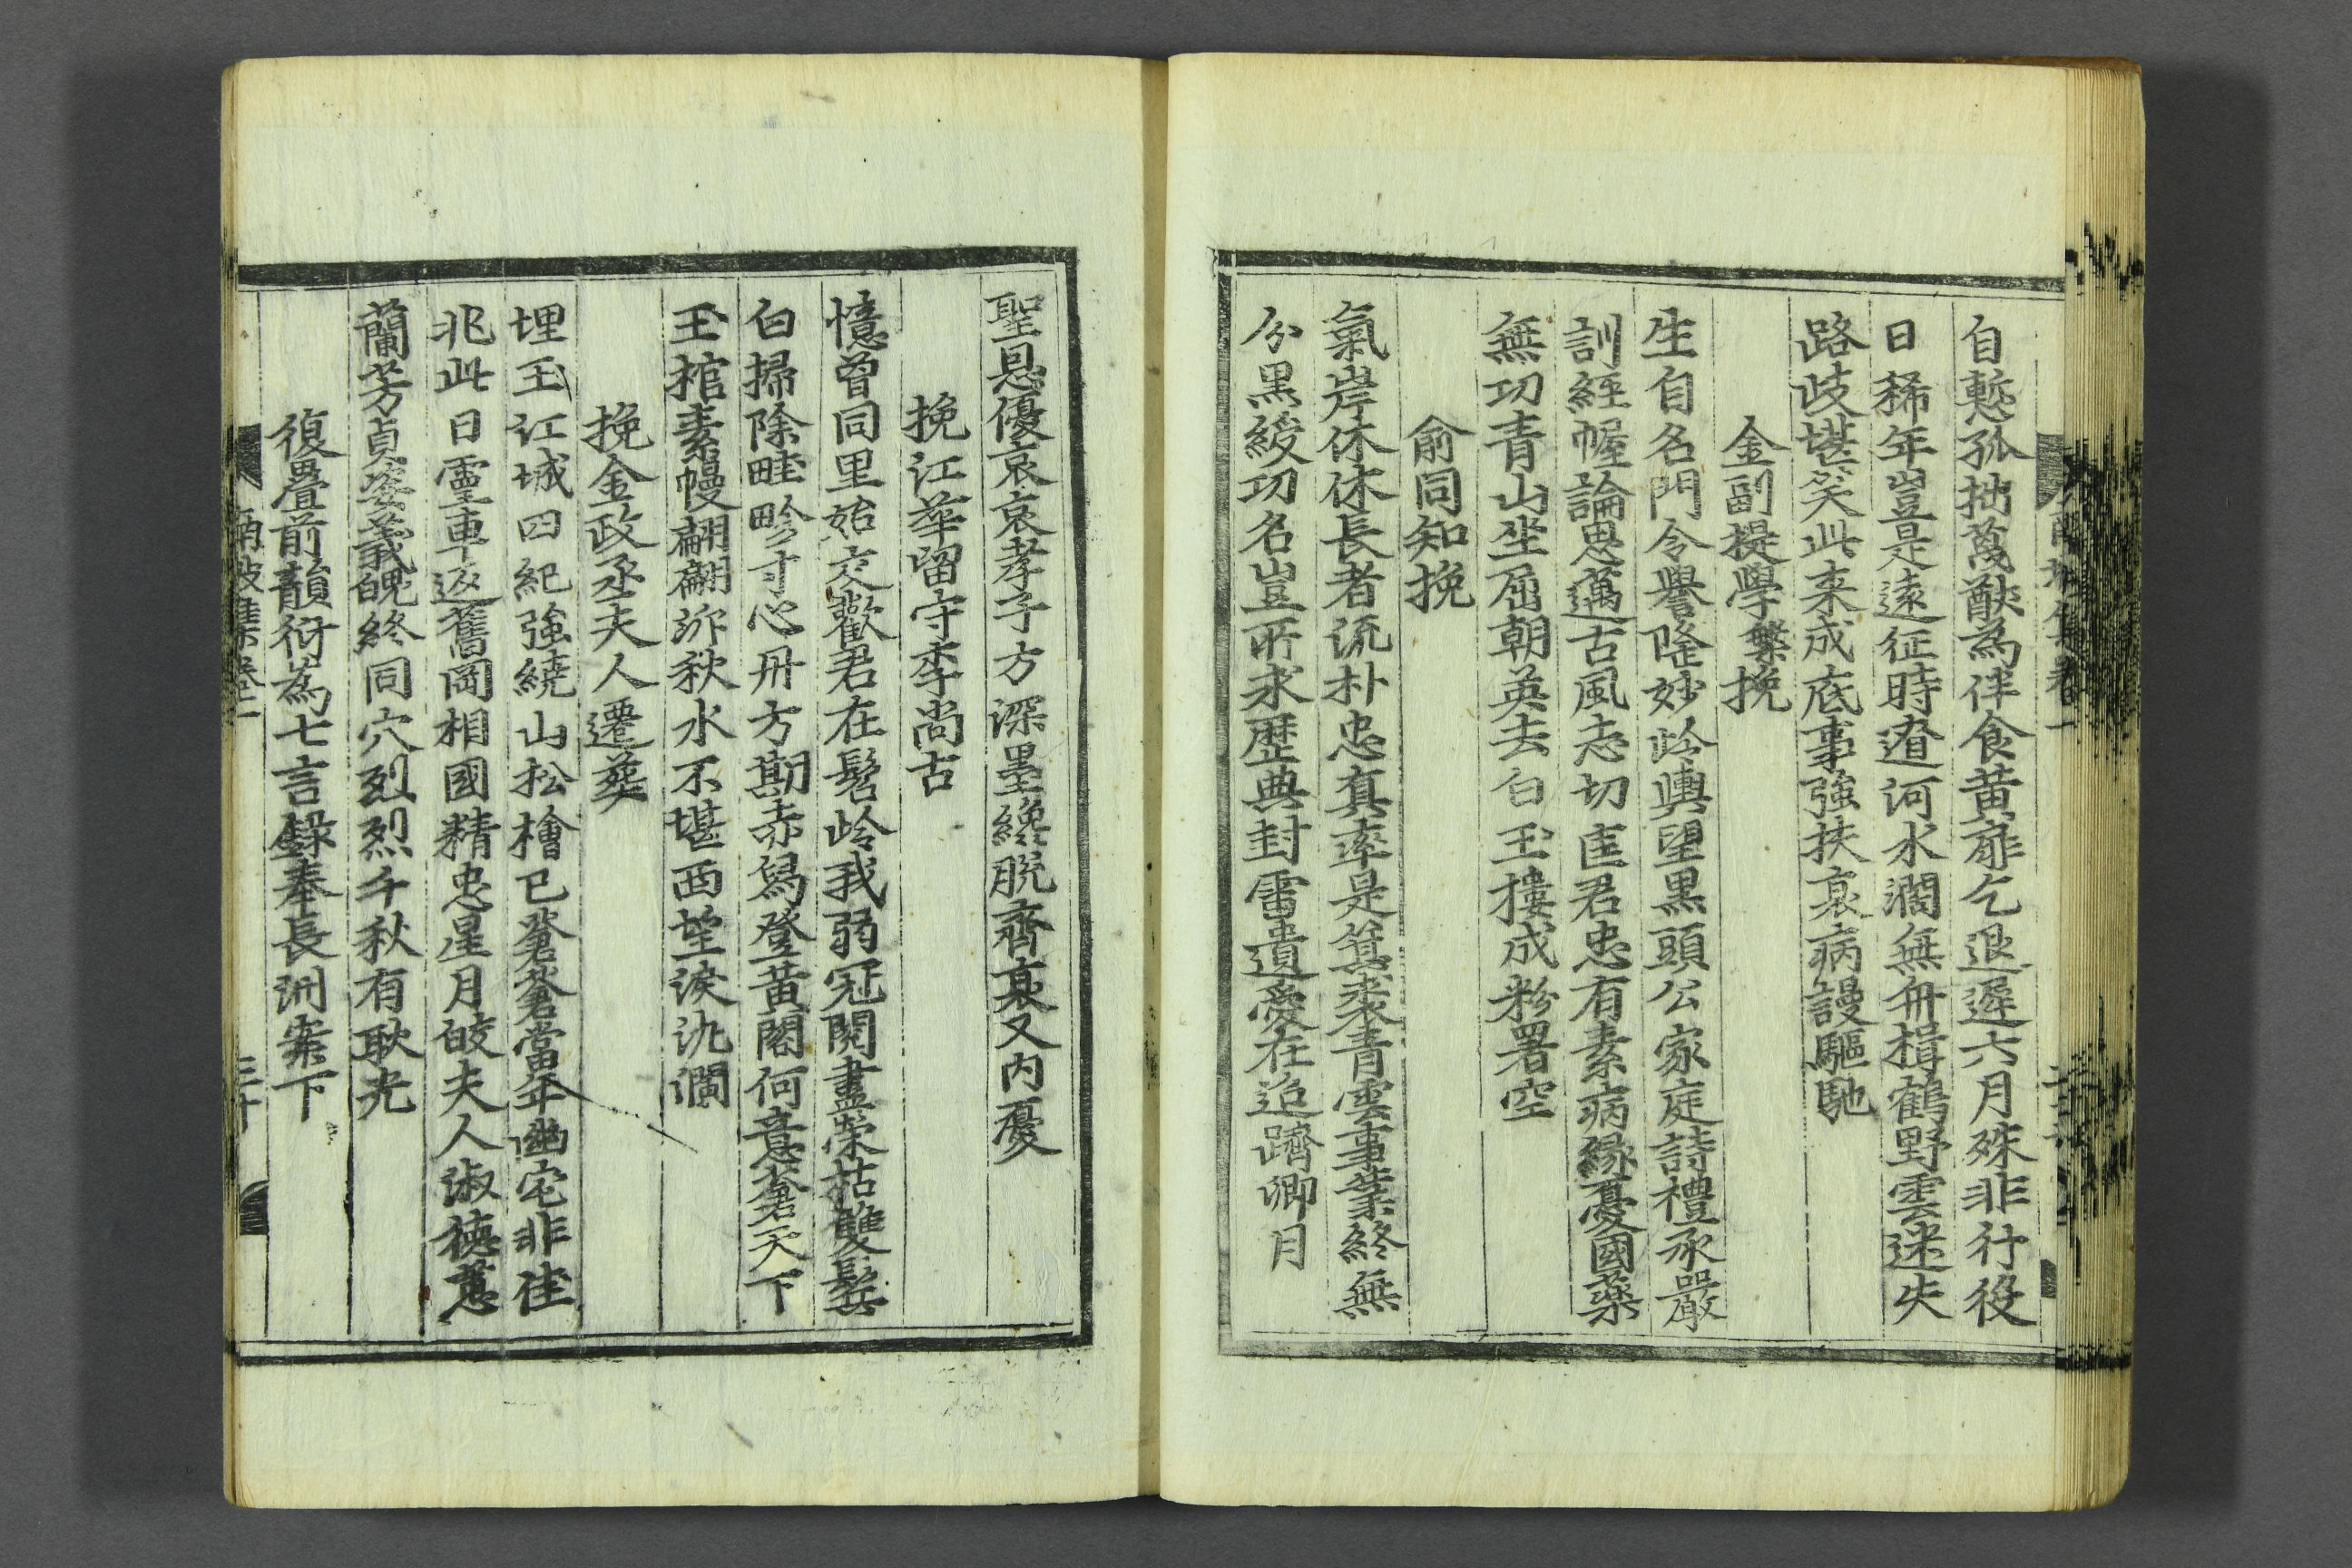 自慙孤拙萬猷為伴食黃扉乞退遲六月殊非行役
日稀年豈是遠征時遼河水濶無舟楫鶴野雲迷失
路歧堪笑此来成底事強扶衰病謾驅馳
金副提學槃挽
生自名門令譽隆妙齡輿望黑頭公家庭詩禮承嚴
訓經幄論思邁古風志切匡君忠有素病緣憂國藥
無功青山坐屈朝英去白玉樓成粉署空
俞同知挽
氣岸休休長者流朴忠真率是箕裘青雲事業終無
分黑綬功名豈所求歷典封雷遺愛在追躋卿月
聖恩優哀哀孝子方深墨纔脫齊衰又內憂
挽江華留守李尙古
憶曾同里始交歡君在髫齡我弱冠閱盡榮枯雙鬂
白掃除畦畛寸心丹方斟赤舄登黃閣何意蒼天下
玉棺素幔翩翩泝秋水不堪西望淚汍瀾
挽金政丞夫人遷葬
埋玉江城四紀強繞山松檜已蒼蒼當年幽宅非佳
兆此日靈車返舊岡相國精忠星月皎夫人淑德蕙
蘭芳貞姿義魄終同穴烈烈千秋有耿光
復疊前韻衍為七言錄奉長洲案下
坡集卷二
三十